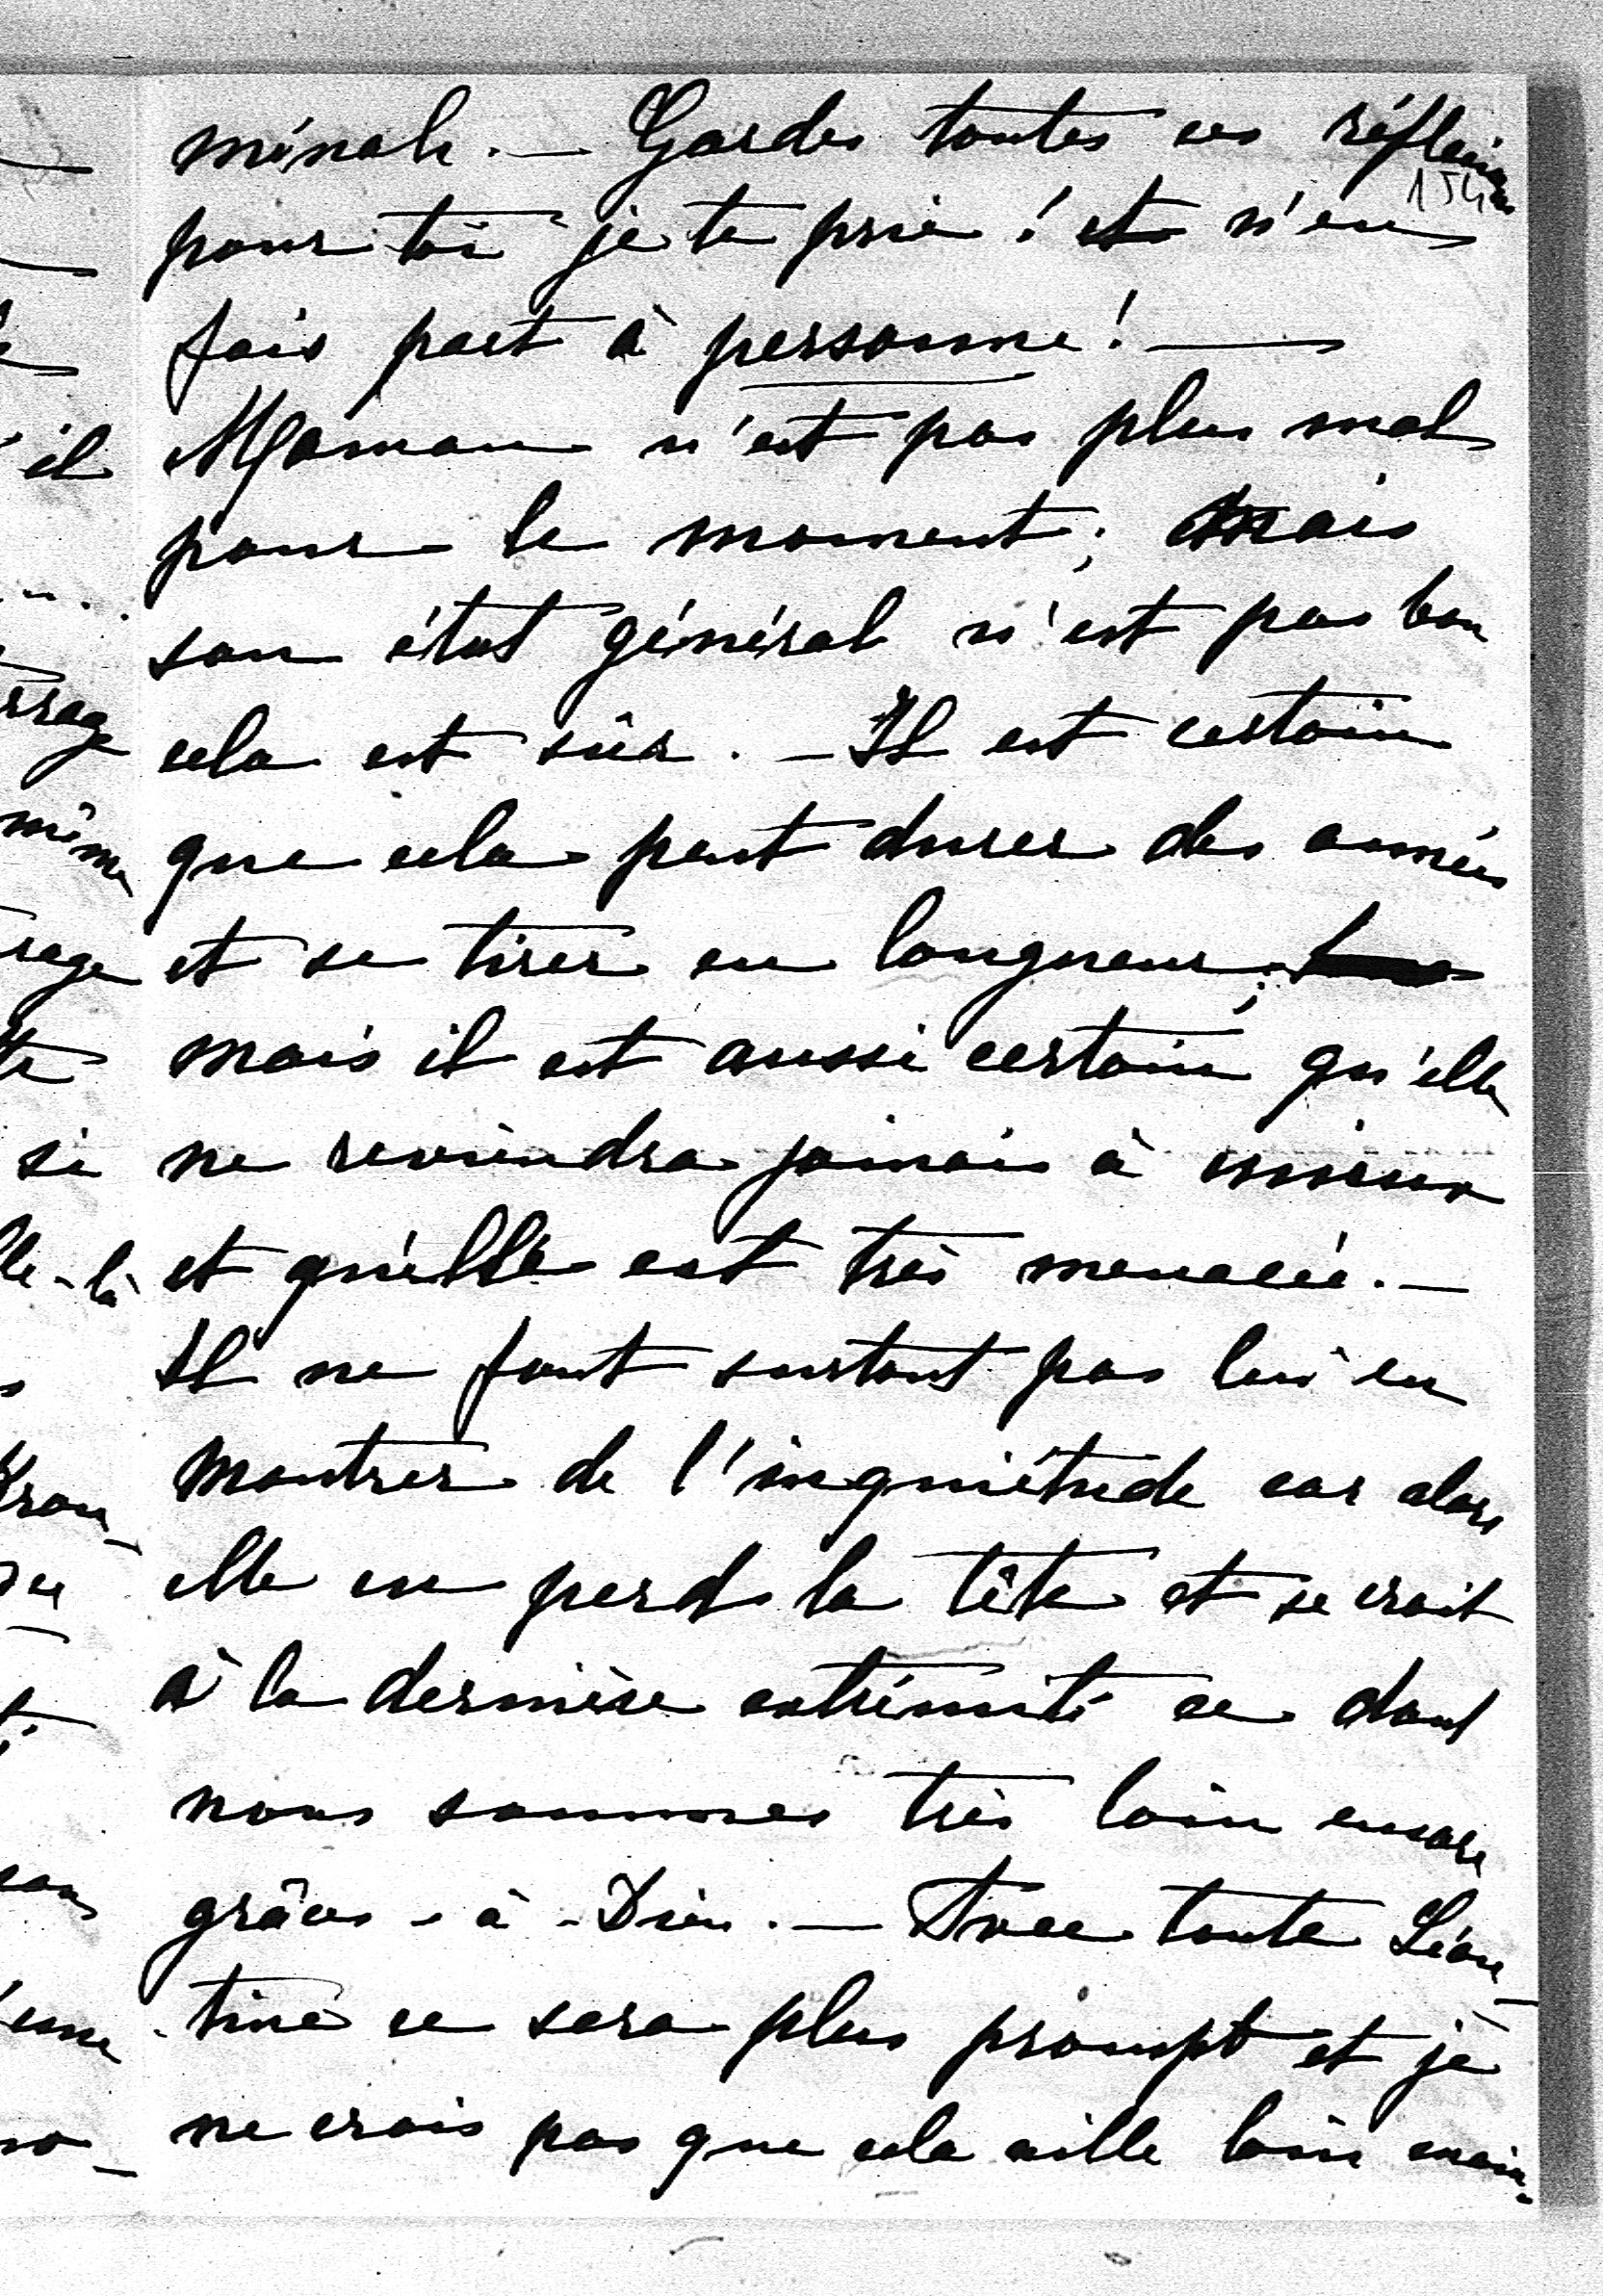 minale. — Gardes toutes ces réflexions
154
pour toi je te prie ! et n'en
fais part à personne ! —
Maman n'est pas plus mal
pour le moment ; mais
son état général n'est pas bon
cela est sûr. — Il est certain
que cela peut durer des années
et se tirer en longueur ;
mais il est aussi certain qu'elle
ne reviendra jamais à mieux
et qu'elle est très menacée. —
Il ne faut surtout pas lui en
montrer de l'inquiétude car alors
elle en perd la tête et se croit
à la dernière extrémité ce dont
nous sommes très loin encore
grâces - à - Dieu. — Avec tante Léon-
tine ce sera plus prompt et je
ne crois pas que cela aille loin main-